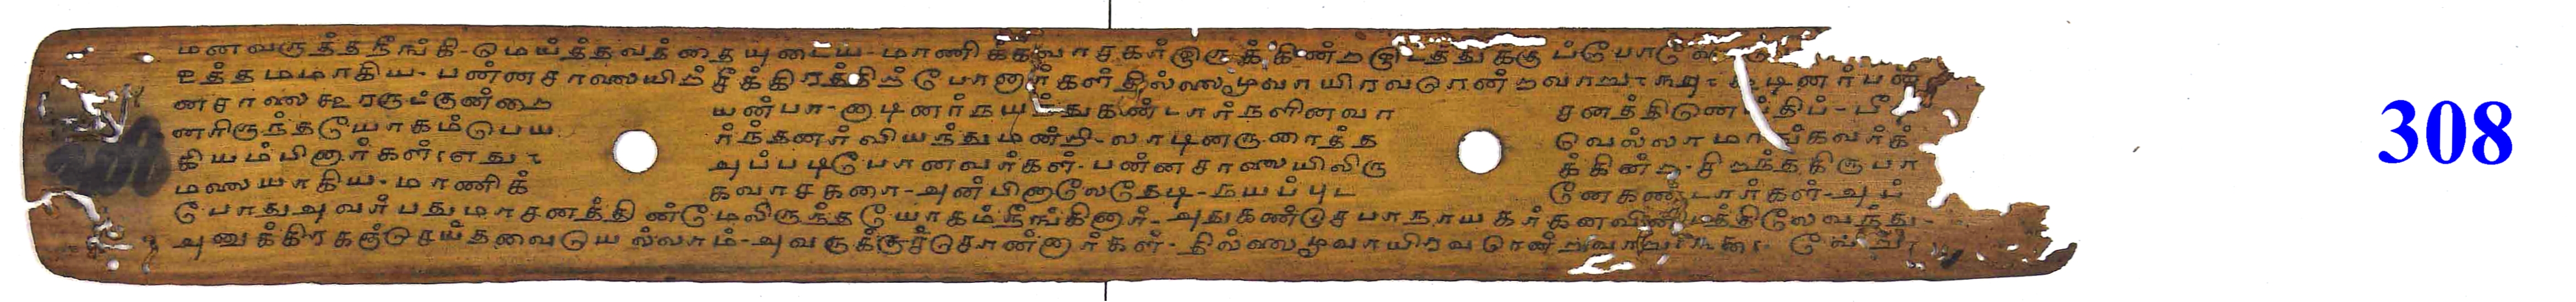 மனவருத்தநீங்கி-மெய்த்தவத்தையுடைய-மாணிக்கவாசகர்இருக்கின்றஇடத்துக்குப்போ
உத்தமமாகிய-பன்னசாலையிற்சீக்கிரத்திற்போனார்கள்தில்லைமூவாயிரவரென்றவாறு
னசாலை யன்பா-னாடினர்நயந்துகண்டார்நளினவா சனத்தி
னரிருந்தயோகம்பெய ர்ந்தனர்வியந்துமன்றி-லாடினருரைத்த வெல்லாமாங்கவர்க்
கியம்பினார்கள்எது அப்படிபோனவர்கள்-பன்னசாலையிலிரு க்கின்ற-சிறந்தகிருபா
மலையாகிய-மாணிக் கவாசகரை-அன்பினாலேதேடி-நயப்புட னேகண்டார்கள்-அப்
போதுஅவர்பதுமாசனத்தின்மேலிருந்தயோகம்நீங்கினார்-அதுகண்டுசபாநாயகர்கனவின் வந்து-
அனுக்கிரகஞ்செய்தவையெல்லாம்-அவருக்குச்சொன்னார்கள்-தில்லைமூவாயிரவரென்றவாறு
308